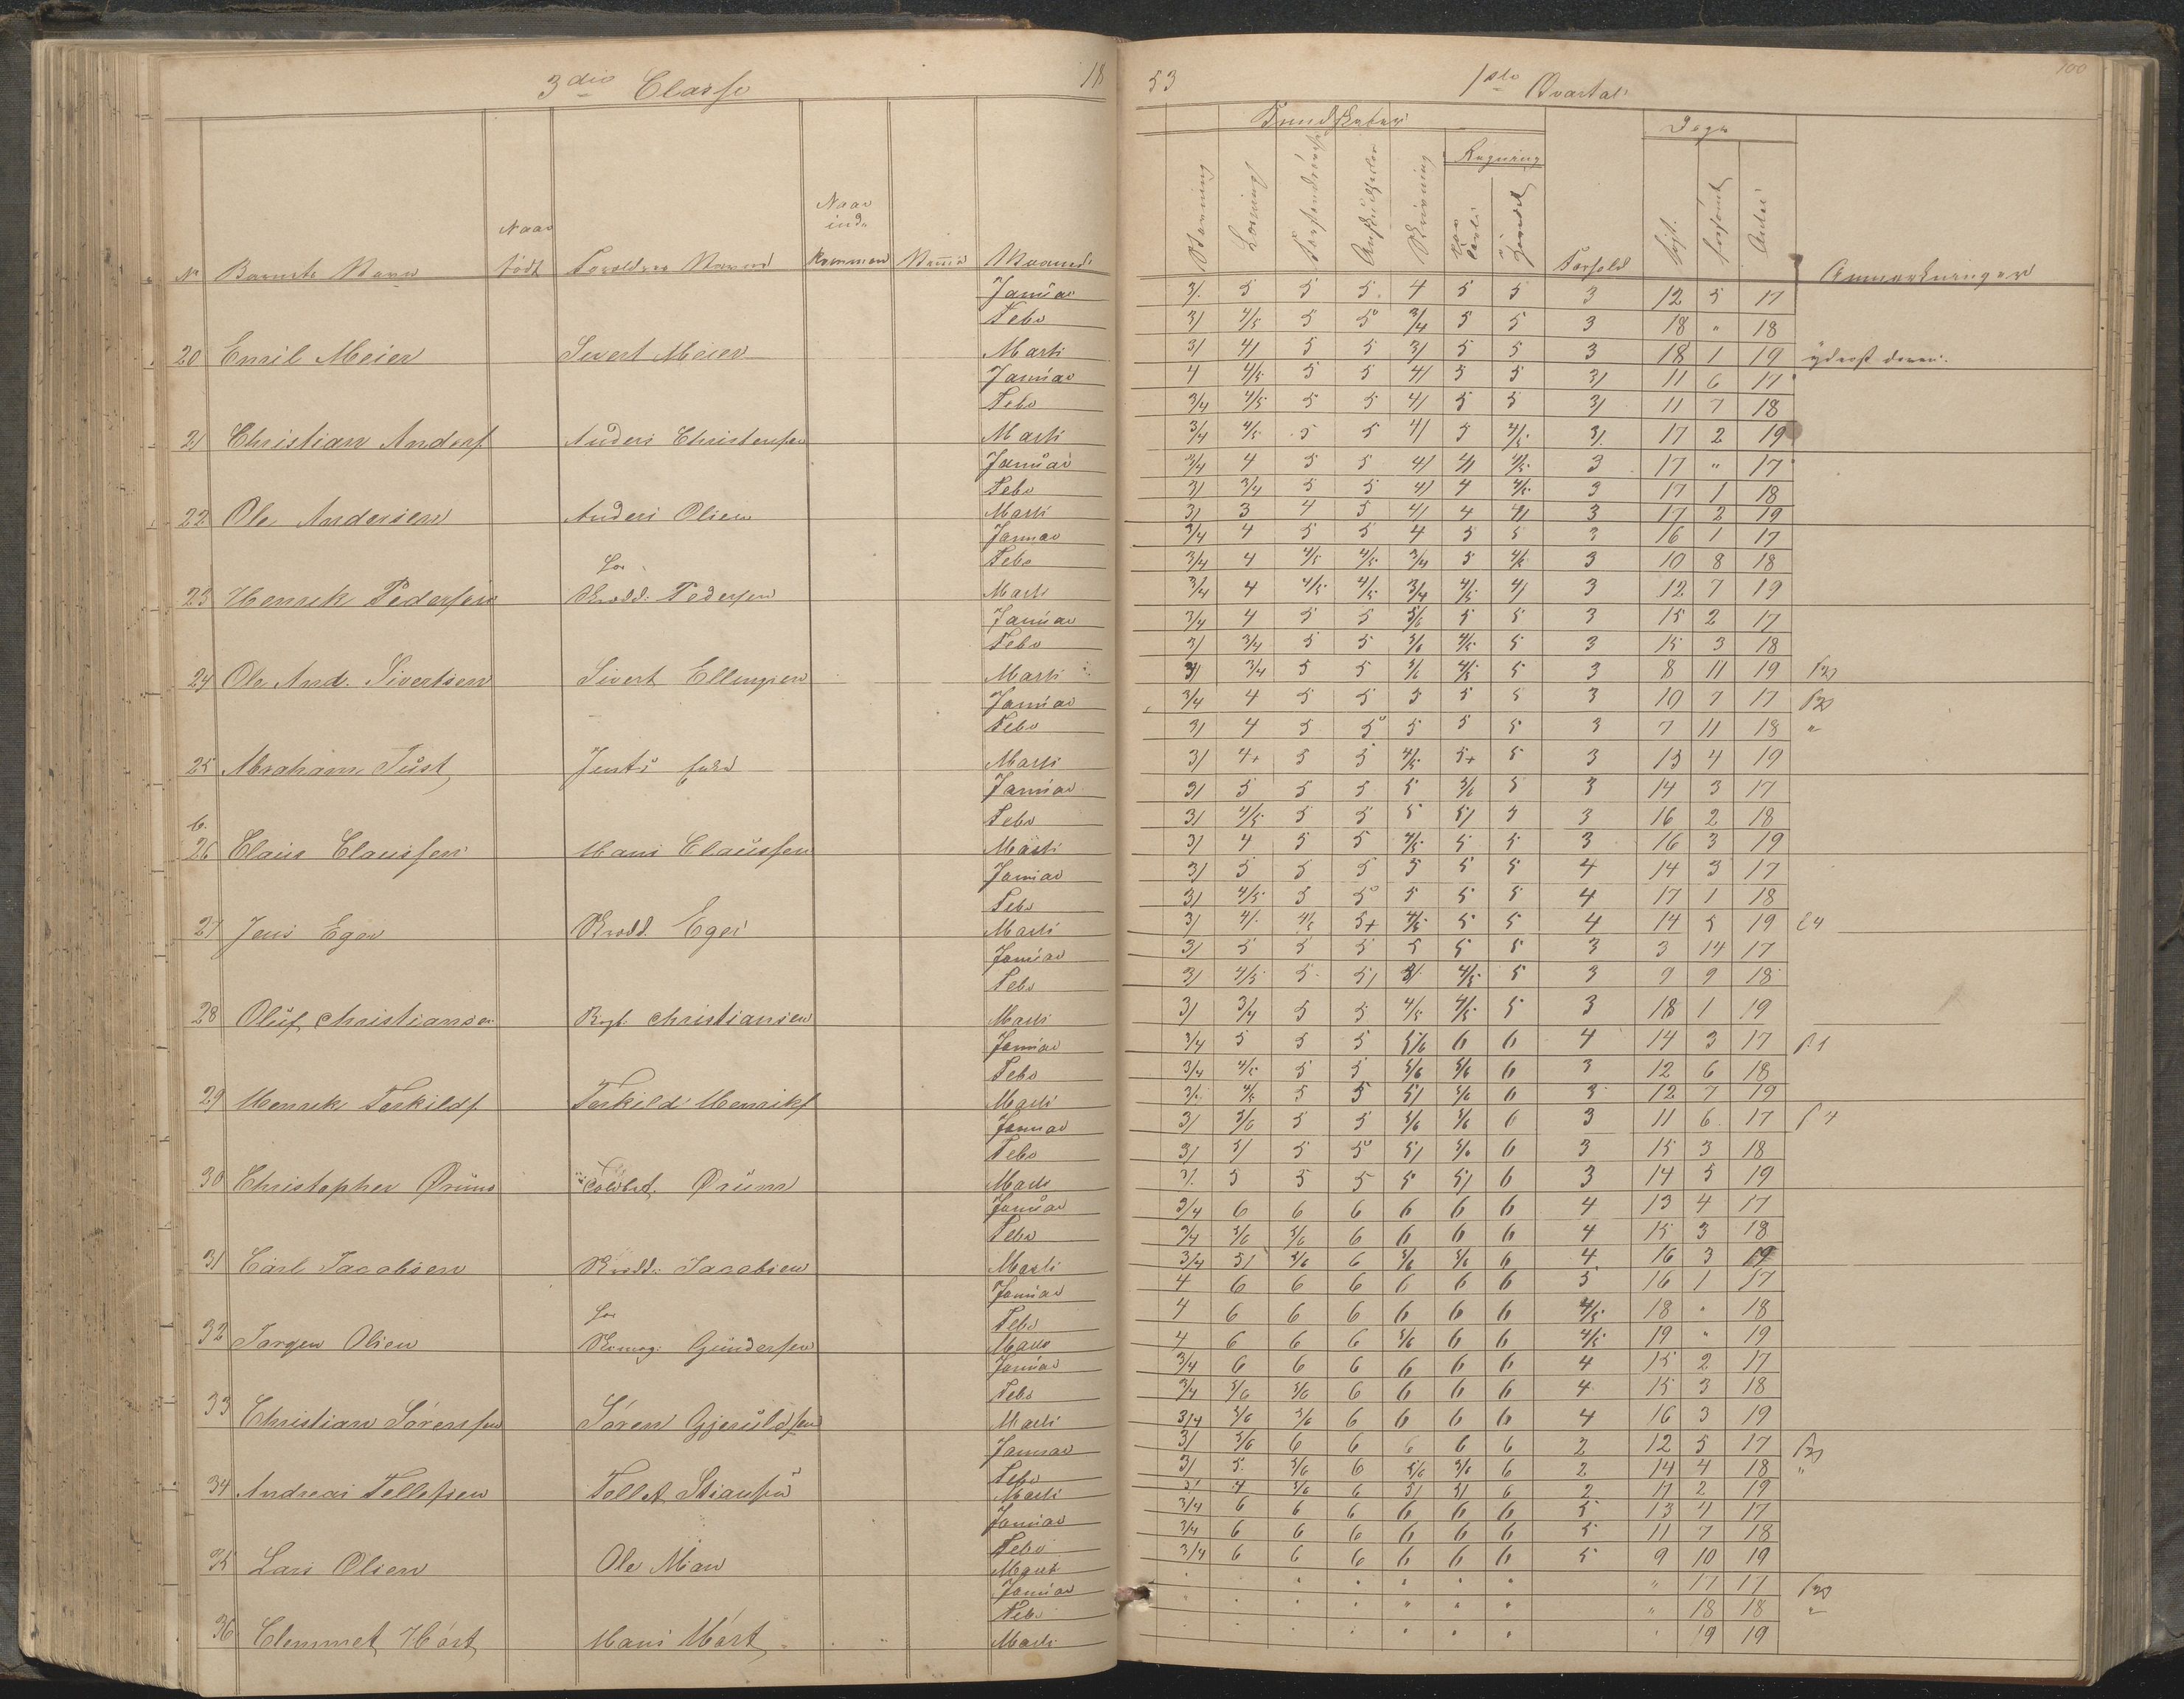 3die Classe 18
53 1ste Qvartal 100
Kundskaber Dage
Regning
No Barnets Navn Naar født Forældres Navne Naar ind- kommen Maaned Læsning Skrivning Forhold søgt forsømt Antal Anmærkninger
Januar 3/ 5 5 5 4 5 5 3 12 5 17
Febr 3/ 4/5 5 5 3/4 5 5 3 18 " 18
20 Emil Meier Sivert Meier Marts 3/ 4/ 5 5 3/ 5 5 3 18 1 19
Januar 4 4/5 5 5 4/ 5 5 3/ 11 6 17
Febr 3/4 4/5 5 5 4/ 5 5 3/ 11 7 18
21 Christian Anders. Anders Christensen Marts 3/4 4/5 5 5 4/ 5 4/5 3/ 17 2 19
Januar 3/4 4 5 5 4/ 4/ 4/5 3 17 " 17
Febr 3/ 3/4 5 5 4/ 4 4/5 3 17 1 18
22 Ole Andersen Anders Olsen Marts 3/ 3 4 5 4/ 4 4/ 3 17 2 19
Januar 3/4 4 5 5 4 5 5 3 16 1 17
Febr 3/4 4 4/5 4/5 3/4 5 4/5 3 10 8 18
23 Henrik Pedersen Pedersen Marts 3/4 4 4/5 4/5 3/4 4/5 4/ 3 12 7 19
Januar 3/4 4 5 5 5/6 5 5 3 15 2 17
Febr 3/ 3/4 5 5 5/6 4/5 5 3 15 3 18
24 Ole And. Sivertsen Sivert Ellingsen Marts 3/ 3/4 5 5 5/6 4/5 5 3 8 11 19
Januar 3/4 4 5 5 5 5 5 3 10 7 17
Febr 3/ 4 5 5 5 5 5 3 7 11 18 "
25 Abraham Just Marts 3/ 4+ 5 5 4/5 5+ 5 3 13 4 19
Januar 3/ 5 5 5 5 5/6 5 3 14 3 17
Febr 3/ 4/5 5 5 5 5/ 5 3 16 2 18
26 Claus Claussen Hans Claussen Marts 3/ 4 5 5 4/5 5 5 3 16 3 19
Januar 3/ 5 5 5 5 5 5 4 14 3 17
Febr 3/ 4/5 5 5 5 5 5 4 17 1 18
27 Jens Eger Eger Marts 3/ 4/ 4/5 5+ 4/5 5 5 4 14 5 19
Januar 3/ 5 5 5 5 5 5 3 3 14 17
Febr 3/ 4/5 5 5/ 4/5 5 3 9 9 18
28 Oluf Christiansen Christiansen Marts 3/ 3/4 5 5 4/5 4/5 5 3 18 1 19
Januar 3/4 5 5 5 5/6 6 6 4 14 3 17
Febr 3/4 4/5 5 5 5/6 5/6 6 3 12 6 18
29 Henrik Terkilds. Terkild Henriks. Marts 3/ 4/5 5 5 5/ 5/6 6 3 12 7 19
Januar 3/ 5/6 5 5 5/6 5/6 6 3 11 6 17
Febr 3/ 5/ 5 5 5/ 5/6 6 3 15 3 18
30 Christopher Ørum Ørum Marts 3/ 5 5 5 5 5/ 6 3 14 5 19
Januar 3/4 6 6 6 6 6 6 4 13 4 17
Febr 3/4 5/6 5/6 6 6 6 6 4 15 3 18
31 Carl Jacobsen Jacobsen Marts 3/4 5/ 5/6 6 5/6 5/6 6 4 16 3 19
Januar 4 6 6 6 6 6 6 5 16 1 17
Febr 4 6 6 6 6 6 6 4/5 18 " 18
32 Jørgen Olsen Gundersen Marts 4 6 6 6 5/6 6 6 4/5 19 " 19
Januar 3/4 6 6 6 6 6 6 4 15 2 17
Febr 3/4 5/6 5/6 6 6 6 6 4 15 3 18
33 Christian Sørensen Søren Gjeruldsen Marts 3/4 5/6 5/6 6 6 6 6 4 16 3 19
Januar 3/ 5/6 6 6 6 6 6 2 12 5 17
Febr 3/ 5 5/6 6 5/6 5/6 6 2 14 4 18 "
34 Andreas Tellefsen Tellef Stiansen Marts 4 5/6 6 5/ 5/ 6 2 17 2 19
Januar 3/4 6 6 6 6 6 6 5 13 4 17
Febr 3/4 6 6 6 6 6 6 5 11 7 18
35 Lars Olsen Ole Moe Marts 3/4 6 6 6 6 6 6 5 9 10 19
Januar " " " " " " 17 17
Febr " " " " " " 18 18 "
36 Clemmet Hørt Hans Hørt Marts " " " " " " 19 19